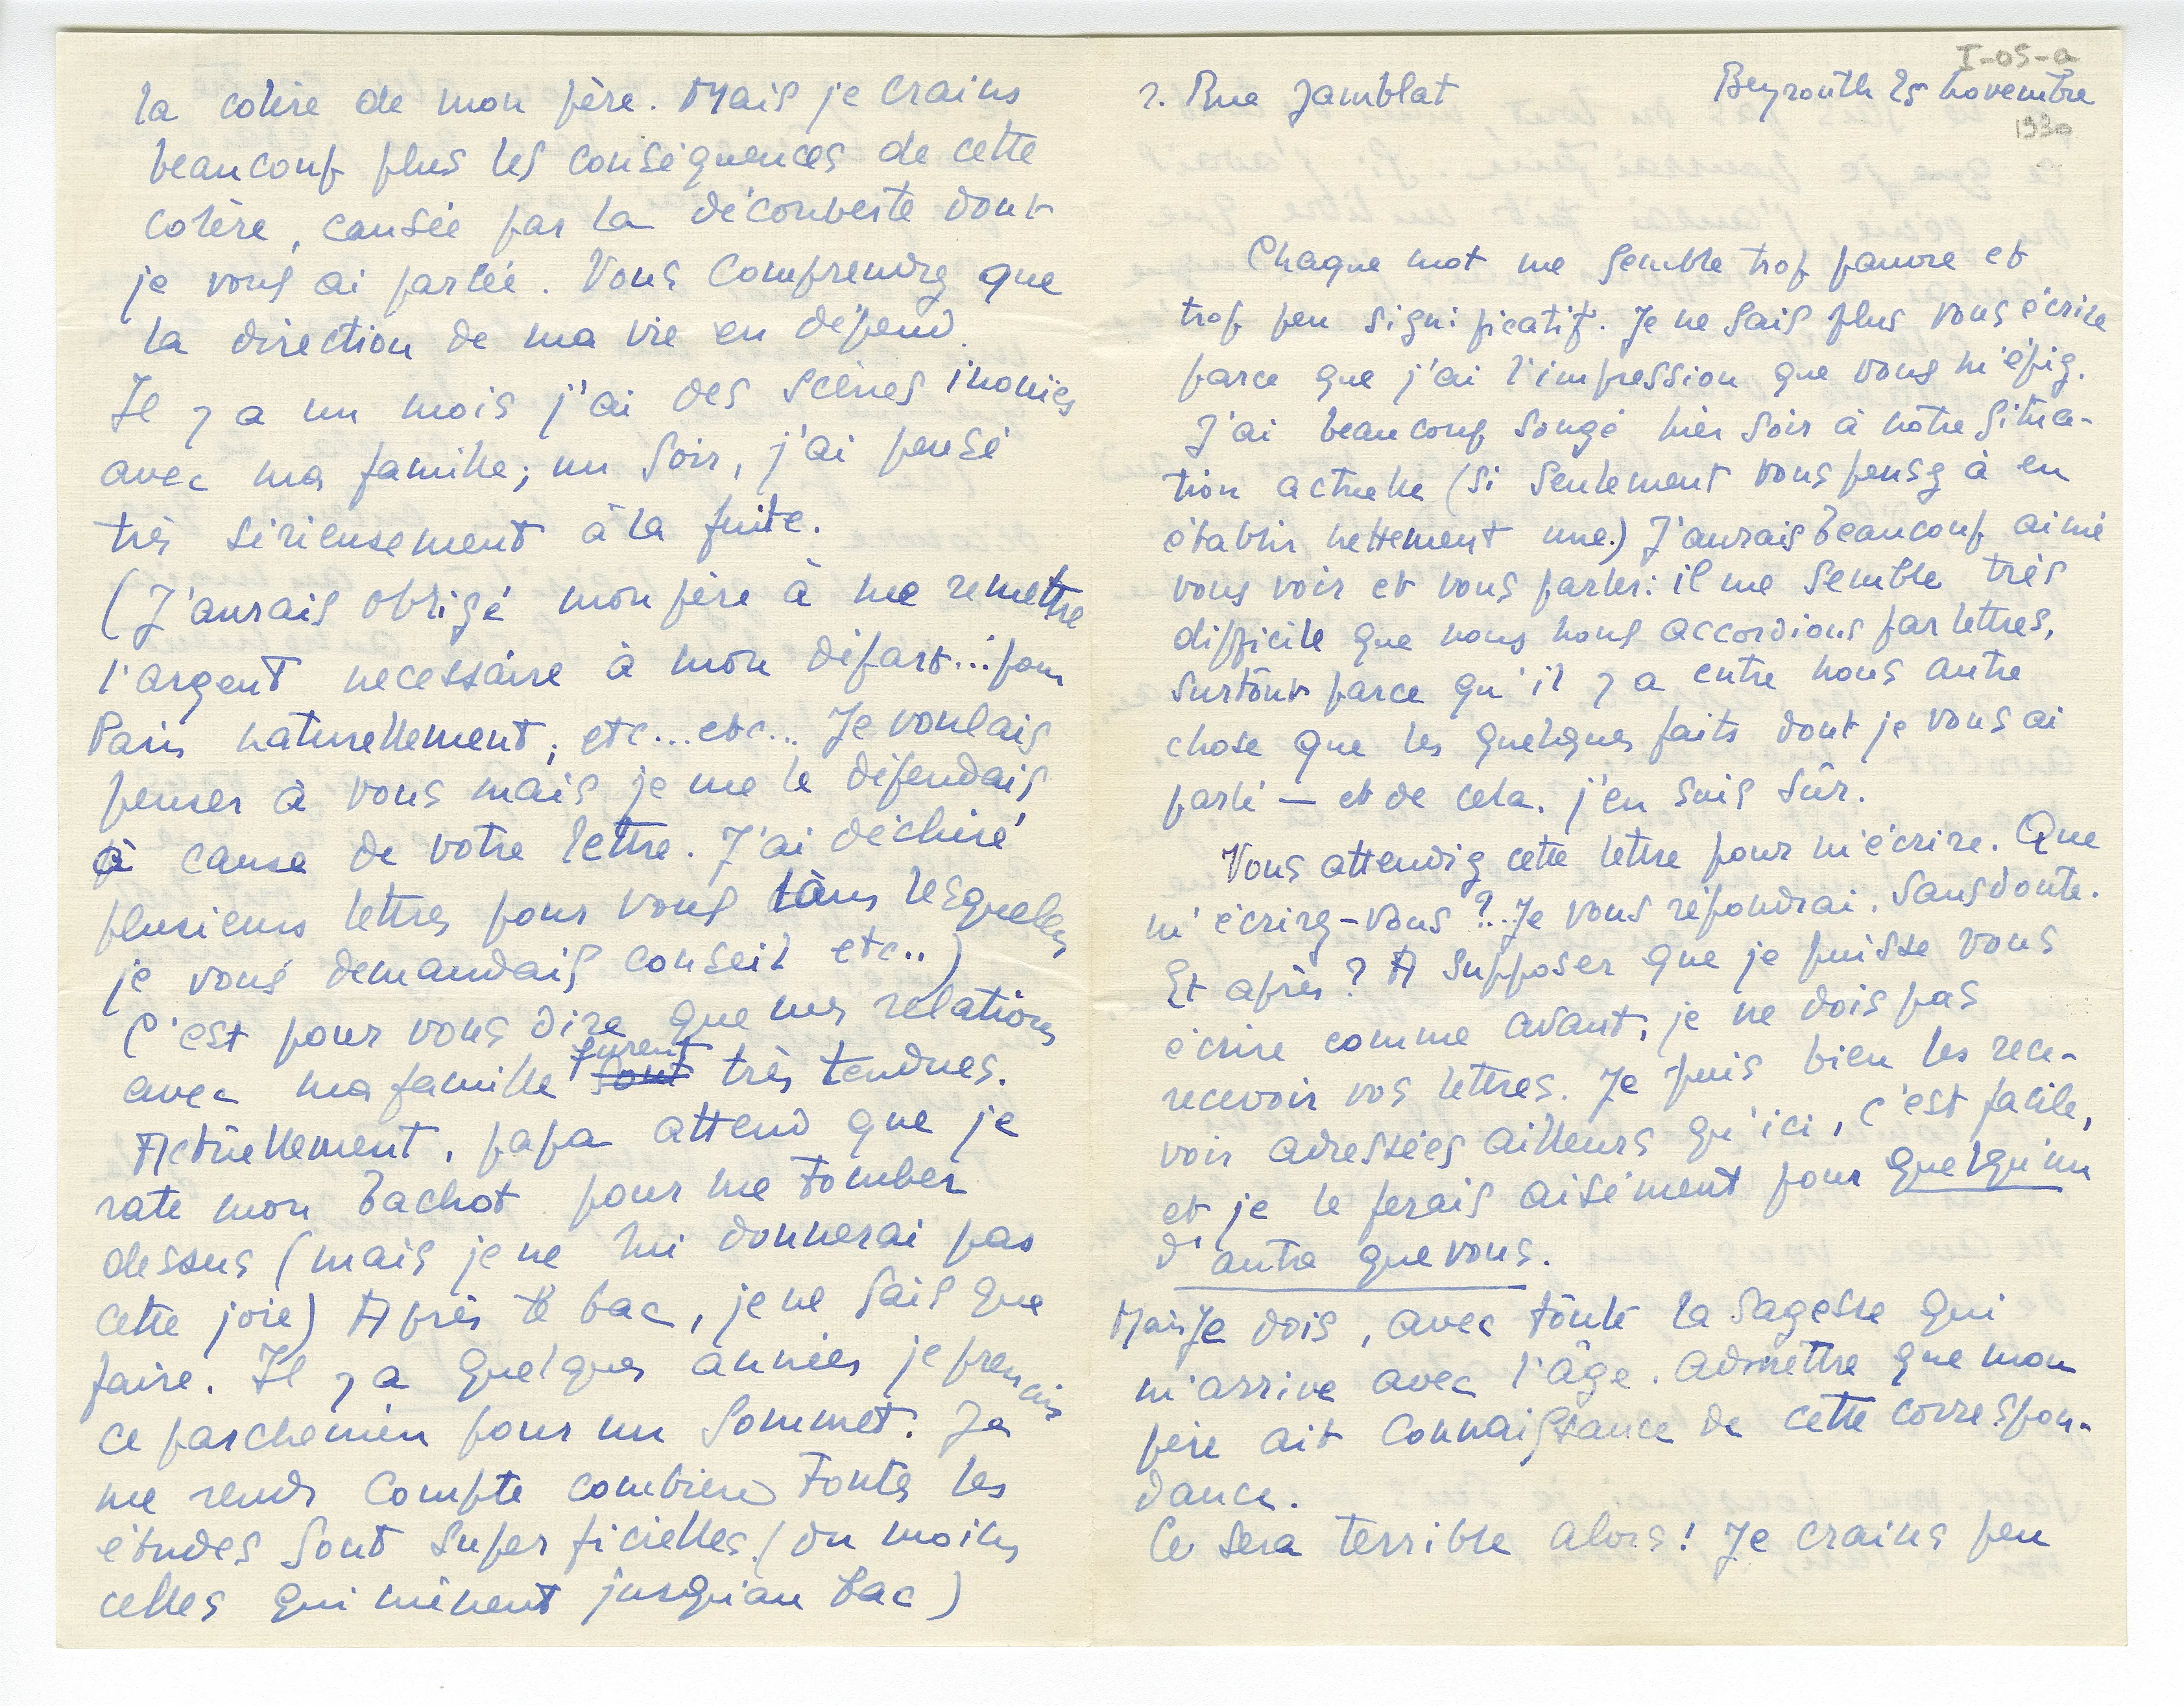 I-05-a
2. Rue Jamblat Beyrouth 25 novembre
1930
Chaque mot me semble trop pauvre et
trop peu significatif. Je ne sais plus vous écrire
parce que j'ai l'impression que vous m'épiez.
J'ai beaucoup songé hier soir à notre situa-
tion actuelle (si seulement vous pensez à en
établir nettement une.) J'aurais beaucoup aimé
vous voir et vous parler: il me semble très
difficile que nous nous accordions par lettres,
surtout parce qu'il y a entre nous autre
chose que les quelques faits dont je vous ai
parlé — et de cela. j'en suis sûr.
Vous attendiez cette lettre pour m'écrire. Que
m'écrirez-vous ?.. Je vous répondrai. Sans doute.
Et après ? A supposer que je puisse vous
écrire comme avant, je ne dois pas
recevoir vos lettres. Je puis bien les rece-
voir adressées ailleurs qu'ici, c'est facile,
et je le ferais aisément pour quelqu'un
d'autre que vous.
Mais je dois, avec toute la sagesse qui
m'arrive avec l'âge. admettre que mon
père ait connaissance de cette correspon-
dance.
Ce sera terrible alors! Je crains peu
la colère de mon père. Mais je crains
beaucoup plus les conséquences de cette
colère, causée par la découverte dont
je vous ai parlée. Vous comprendrez que
la direction de ma vie en dépend.
Il y a un mois j'ai des scènes inouïes
avec ma famille; un soir, j'ai pensé
très sérieusement à la fuite.
(J'aurais obligé mon père à me remettre
l'argent necessaire à mon départ... pour
Paris naturellement, etc... etc... Je voulais
penser à vous mais je me le défendais
à cause de votre lettre. J'ai déchiré
plusieurs lettres pour vous dans lesquelles
je vous demandais conseil etc..)
C'est pour vous dire que mes relations
avec ma famille furent sont très tendues.
Actuellement, papa attend que je
rate mon bachot pour me tomber
dessus (mais je ne lui donnerai pas
cette joie) Après le bac, je ne sais que
faire. Il y a quelques années je prenais
ce parchemin pour un sommet. Je
me rends compte combien toutes les
études sont superficielles. (du moins
celles qui mènent jusqu'au bac)